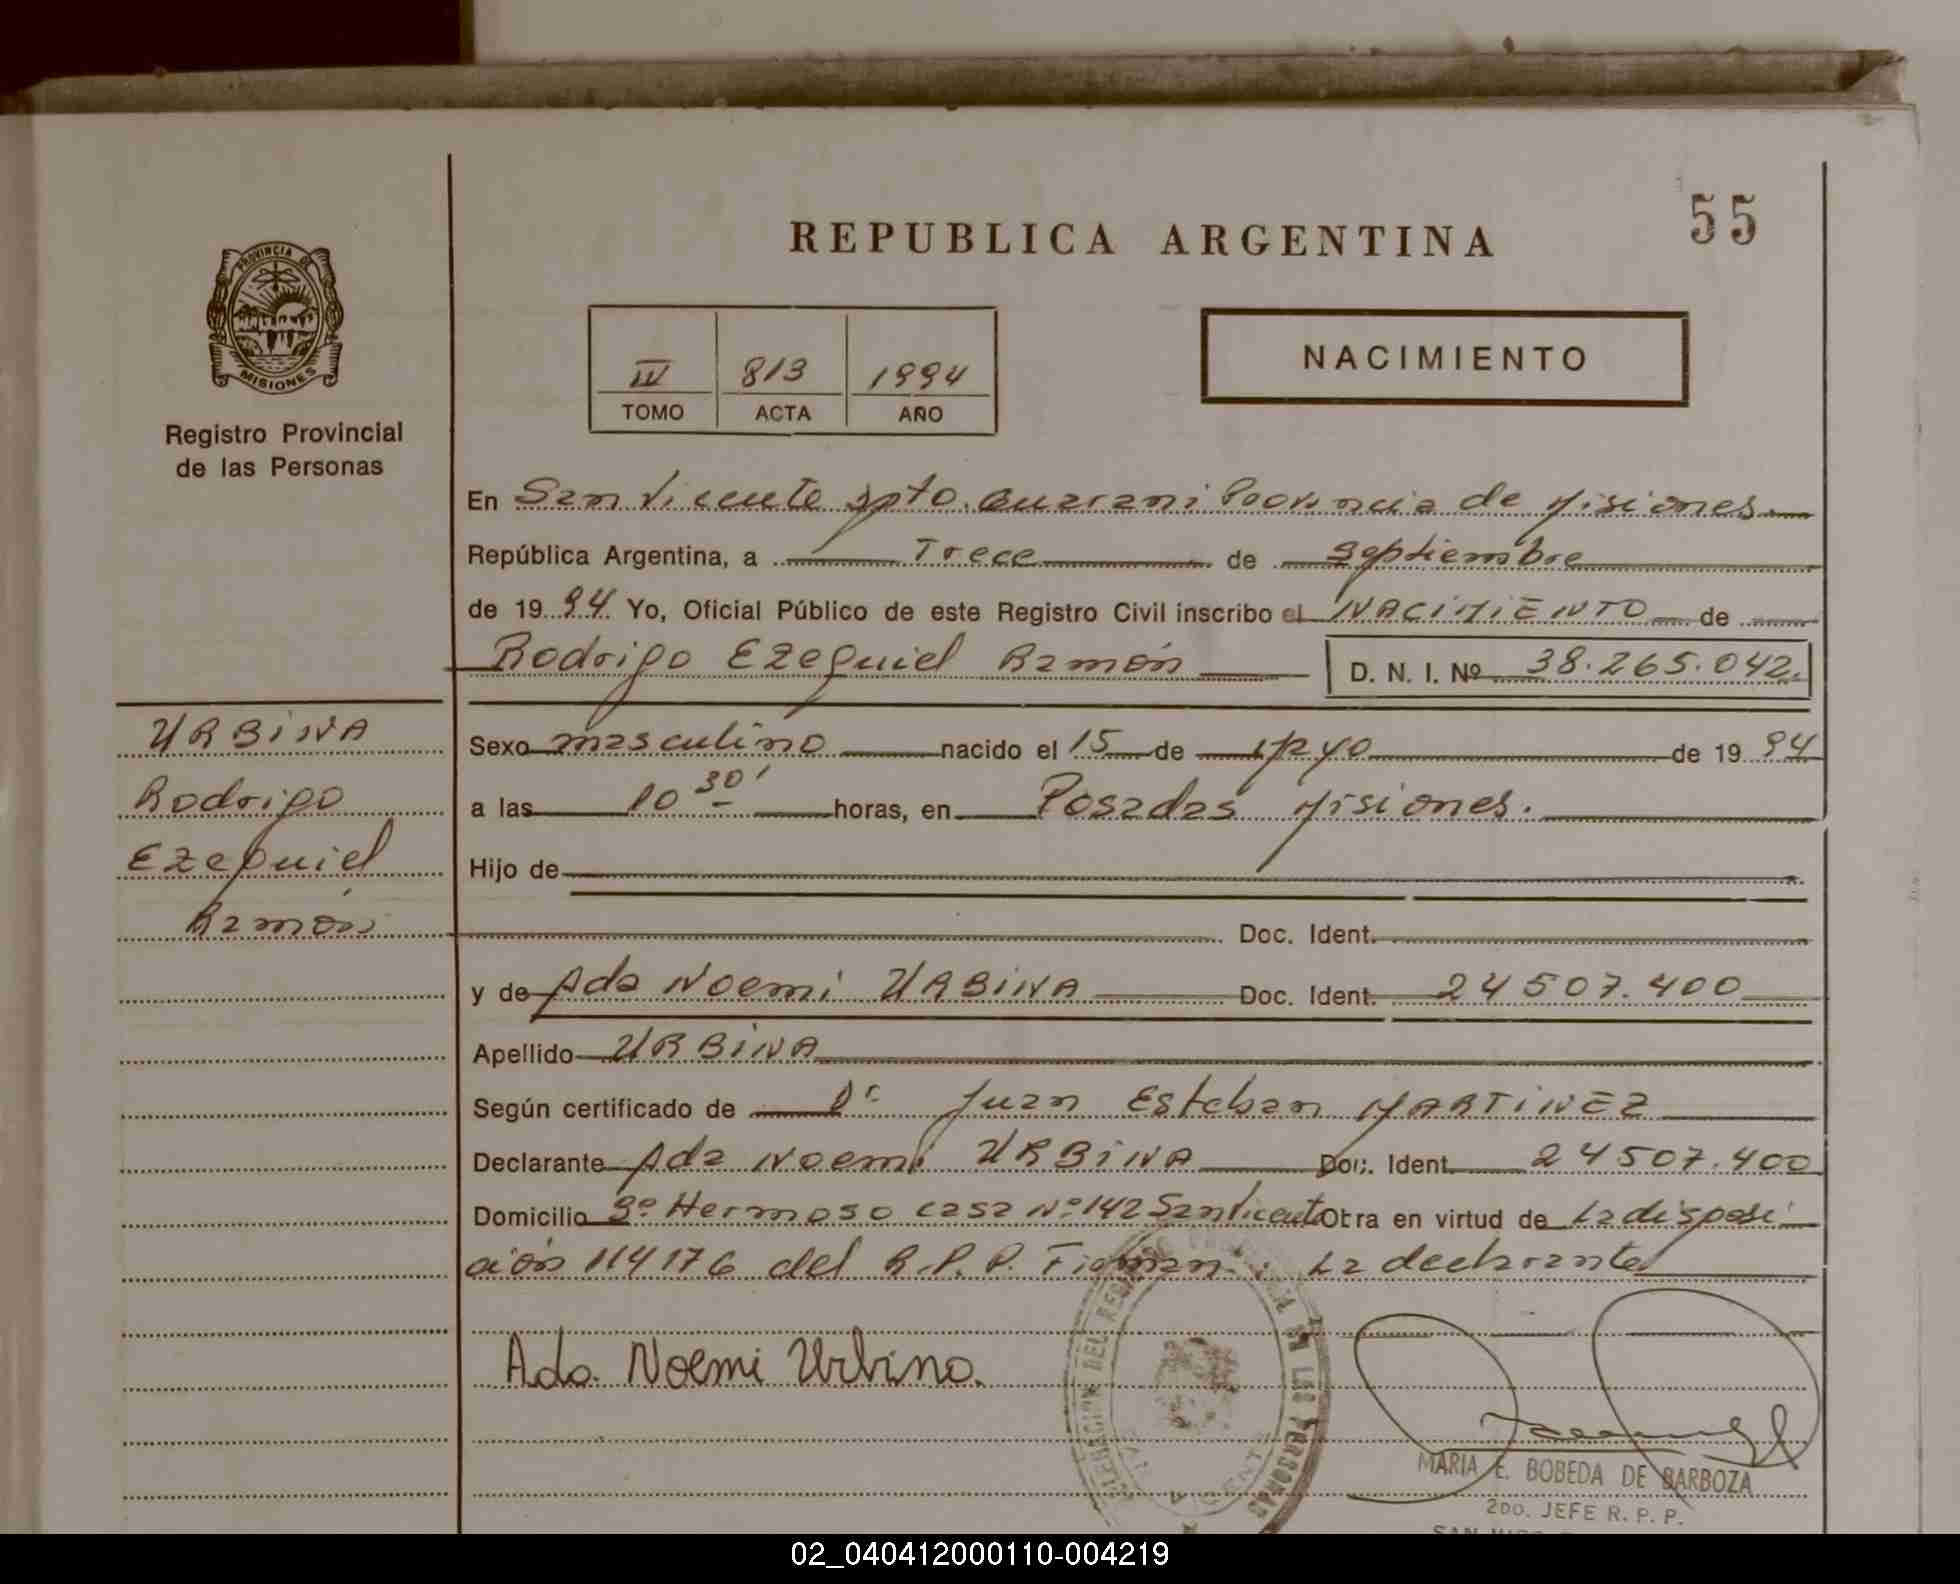 55
REPUBLICA ARGENTINA
PROVINCIA DE
MISIONES
Registro Provincial
de las Personas
IV 813 1994
TOMO ACTA AÑO
NACIMIENTO
En San Vicente Dpto. Guarani Provincia de Misiones
República Argentina, a Trece de Septiembre
de 1994 Yo, Oficial Público de este Registro Civil inscribo el NACIMIENTO de
Rodrigo Ezequiel Ramón D. N. I. Nº 38.265.042.
URBINA
Rodrigo
Ezequiel
Ramón
Sexo masculino nacido el 15 de Mayo de 1994
a las 10 30' horas, en Posadas Misiones.
Hijo de
Doc. Ident.
y de Ada Noemi URBINA Doc. Ident. 24507.400
Apellido URBINA
Según certificado de Dr Juan Esteban MARTINEZ
Declarante Ada Noemi URBINA Doc. Ident. 24507.400
Domicilio Bº Hermoso casa Nº 142 San Vicente Obra en virtud de La disposi
ción 114176 del R.P.P. Firman: La declarante
Ada Noemi Urbina.
DEL REGISTRO PROVINCIAL DE LAS PERSONAS
MARIA E. BOBEDA DE BARBOZA
2DO. JEFE R. P. P.
02_040412000110-004219